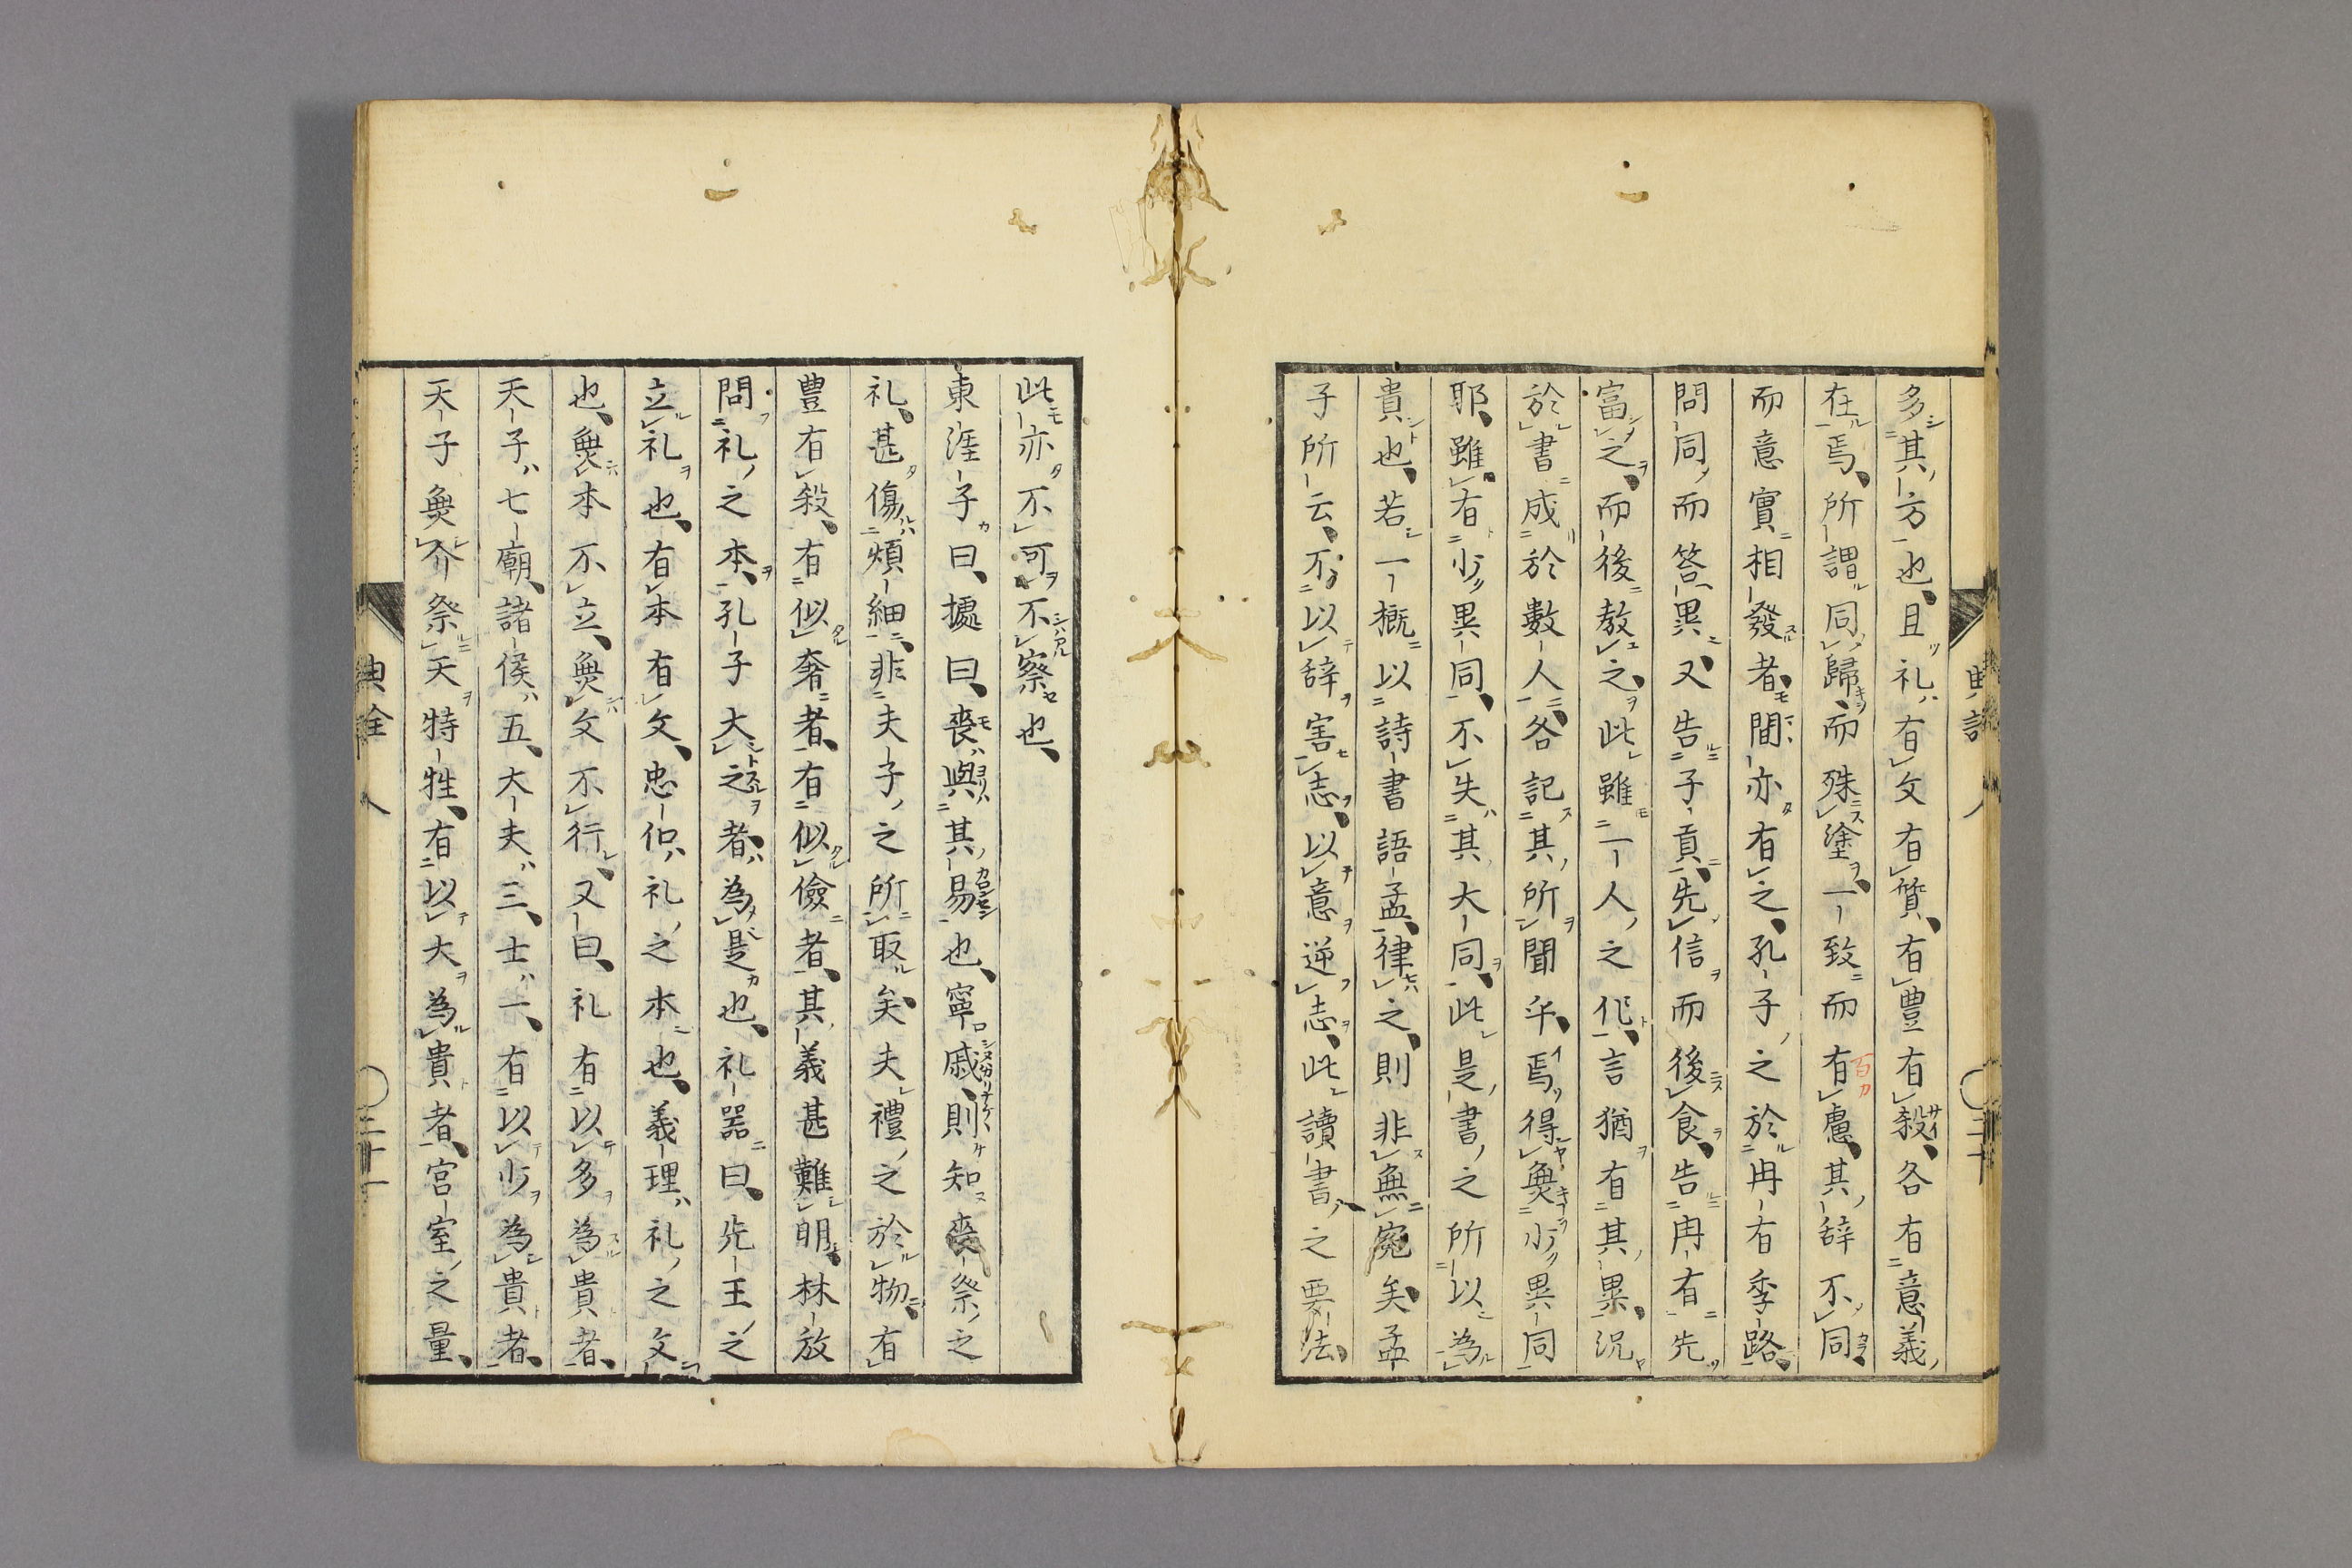 多其方也且礼有文有質有豊有殺各有意義
在焉所謂同歸而殊塗一致而有慮其辞不同
而意實相發者間亦有之孔子之於冉有季路
問同而答異又告子貢先信而後食告冉有先
富之而後教之此雖一人之化言猶有其異況
於書成於數人各記其所聞乎焉得無少異同
耶雖有少異同不失其大同此是書之所以為
貴也若一概以詩書語孟律之則非無寃矣孟
子所云不以辞害志以意逆志此讀書之要法
此亦不可不察也
東涯子曰據曰喪與其易也寧戚則知喪祭之
礼甚傷煩細非夫子之所取矣夫禮之於物有
豊有殺有似奢者有似儉者其義甚難明林放
問礼之本孔子大之者為是也礼器曰先王之
立礼也有本有文忠信礼之本也義理礼之文
也無本不立無文不行又曰礼有以多為貴者
天子七廟諸侯五大夫三士一有以少為貴者
天子無介祭天特牲有以大為貴者宮室之量